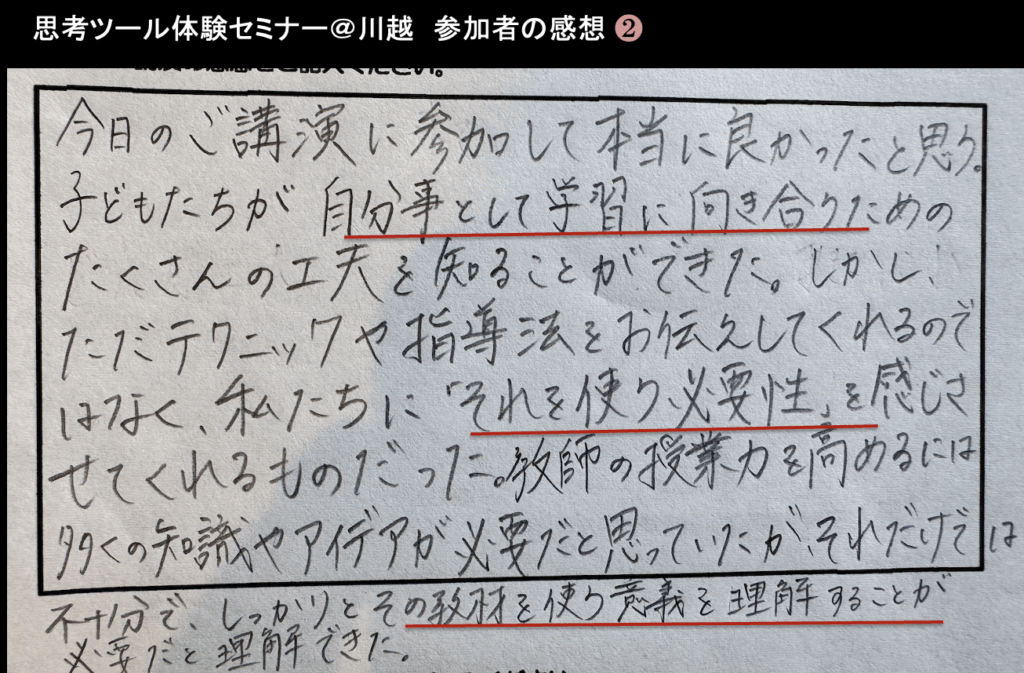 思考ツール体験セミナー@川越 参加者の感想 ❷
今日のご講演に参加して本当に良かったと思う。
子どもたちが自分事として学習に向き合うための
たくさんの工夫を知ることができた。しかし、
ただテクニックや指導法をお伝えしてくれるので
はなく、私たちに「それを使う必要性」を感じさ
せてくれるものだった。教師の授業力を高めるには
多くの知識やアイデアが必要だと思っていたが、それだけでは
不十分で、しっかりとその教材を使う意義を理解することが
必要だと理解できた。